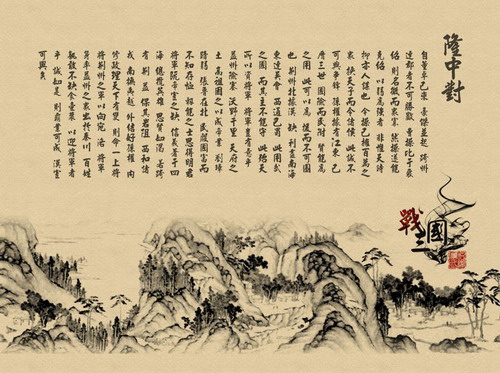 隆中對
自董卓已來 豪傑並起 跨州
連郡者不可勝數 曹操比于袁
紹 則名微而衆寡 然操遂能
克紹 以弱爲强者 非惟天時
抑亦人謀也 今操已擁百萬之
衆 挾天子而令諸侯 此誠不
可與爭鋒 孫權據有江東 已
歷三世 國險而民附 賢能爲
之用 此可以爲援而不可圖
也 荊州北據漢 利盡南海
東連吳會 西通巴蜀 此用武
之國 而其主不能守 此殆天
所以資將軍 將軍豈有意乎
益州險塞 沃野千里 天府之
土 高祖因之以成帝業 劉璋
闇弱 張魯在北 民殷國富而
不知存恤 智能之士思得明君
將軍既帝室之 信義著于四
海 總攬英雄 思賢如渴 若跨
有荊 益 保其巖阻 西和諸
戎 南撫夷越 外結好孫權 內
修政理 天下有變 則命一上將
將荊州之軍以向宛 洛 將軍
身率益州之衆出於秦川 百姓
孰敢不簞食壺漿 以迎將軍者
乎 誠如是 則霸業可成 漢室
可興矣
三國戰